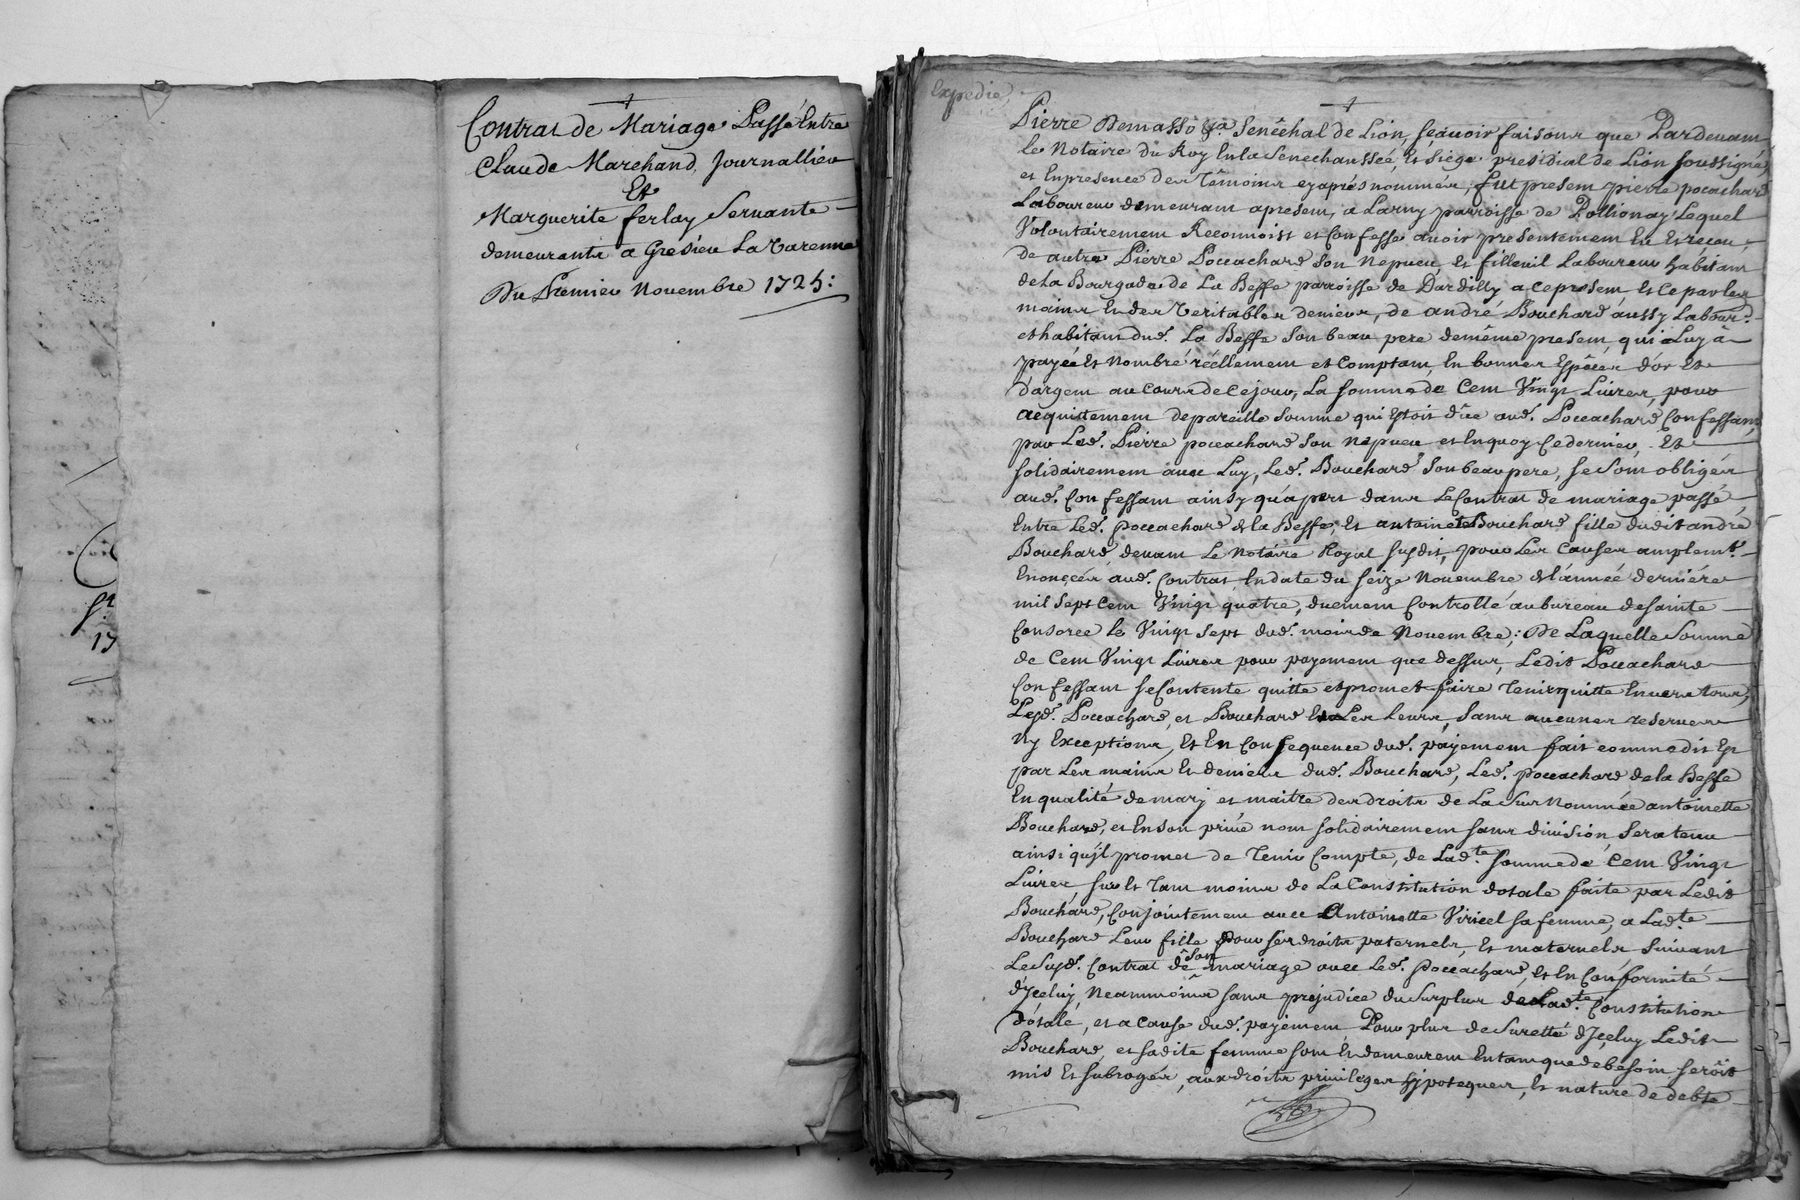 Contrat de Mariage Passé Entre
Claude Marchand, Journallier
Et
Marguerite ferlay Servante
demeurants a Gresieu La Varenne
Du Premier Novembre 1725:
St
17
Expedié
Pierre Demasso &ra. Senêchal de Lion, sçavoir faisons que Pardevant
le Notaire du Roy En la Senechaussée, Et Siége présidial de Lion soussigné,
et En presence des Têmoins cy aprés nommes, fut present pierre pocachard
Laboureur demeurant apresent, a Larny parroisse de Pollionay, Lequel
Volontairement Reconnoist et Confesse avoir presentement Eu Et receu
de autre Pierre Pocachard Son Nepveu, Et filleuil Laboureur habitant
de la Bourgade de La Beffe parroisse de Dardilly a ce present, Et ce par les
mains Et des Veritables deniers, de andré Bouchard aussy Labour.
et habitant dud. La Beffe Son beau pere demême present, qui a Luy â
payée Et Nombré réellement et Comptant, En bonnes Espêces d'or Et
d'argent au cours de ce jour, La somme de Cent Vingt Livres, pour
acquittement de pareille Somme qui Estoit dûe aud. Pocachard Confessant,
par Led. Pierre pocachard Son Nepveu et En quoy Ce dernier, Et
solidairement avec Luy, Led. Bouchard Son beau pere, se Sont obligés
aud. Confessant ainsy qu'apert dans Le Contrat de mariage passé
Entre Led. Pocachard de la Beffe, Et antoinette Bouchard fille dudit andré
Bouchard, devant Le Notaire Royal susdit, pour Les Causes amplemt.
Enoncées aud. Contrat En date du seize Novembre de l'année derniére
mil Sept Cent Vingt quatre, duement Controllé au bureau de Sainte
Consorce Le Vingt Sept dud. mois de Novembre; De Laquelle Somme
de Cent Vingt Livres pour payement que dessus, Ledit Pocachard
Confessant se Contente quitte et promet faire Tenir quitte Envers tous,
Lesd. Pocachard, et Bouchard Et Les Leurs, Sans aucunes reserves
Ny Exceptions, Et En Consequence dud. payement fait comme dit Est
par Les mains Et deniers dud. Bouchard, Led. pocachard de la Beffe
En qualité de mary et maitre des droits de La Sus Nommée antoinette
Bouchard, et En Son privé nom solidairement sans division, Sera tenu
ainsi qu'jl promet de Tenir Compte, de Ladte. somme de Cent Vingt
Livres sur Et Tant moins de La Constitution dotale faite par Ledit
Bouchard, Conjointement avec Antoinette Viricel sa femme, a Ladte.
Bouchard Leur fille Pour ses droits paternels, Et maternels Suivant
Le Susd. Contrat de Son mariage avec Led. Pocachard, Et En Conformité
d'Jceluy, Neanmoins sans prejudice du Surplus de Ladte. Constitution
dotale, et a Cause dud. payement Pour plus de Suretté d'Jceluy Ledit
Bouchard, et sadite femme sont Et demeurent En tant que de besoin seroit
mis Et subrogés, aux droits privileges hypoteques, Et nature de debte